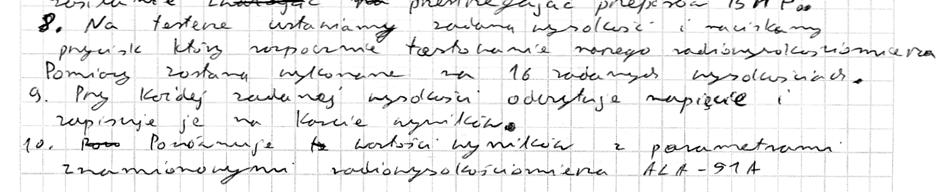 przestrzegając przepisów BHP.
8. Na testerze ustawiamy zadaną wysokość i naciskamy
przycisk który rozpocznie testowanie nowego radiowysokościomierza
Pomiary zostaną wykonane na 16 zadanych wysokościach.
9. Przy każdej zadanej wysokości odczytuje napięcie i
zapisuje je na karcie wyników.
10. Porównuje wartości wyników z parametrami
znamionowymi radiowysokościomierza ALA-51A